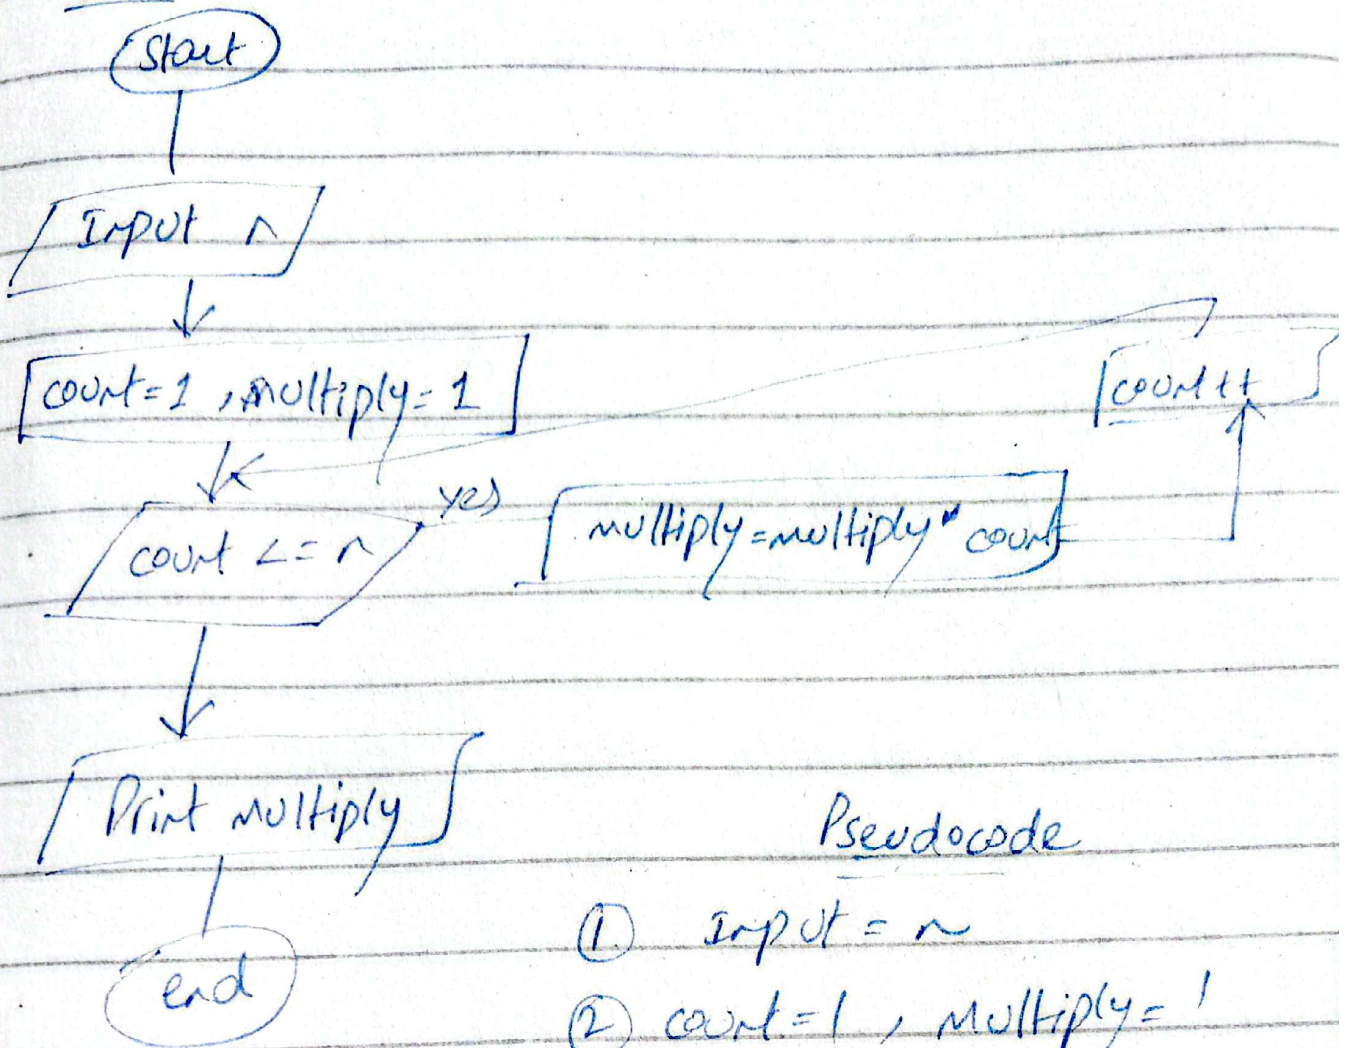 Start
Input n
count=1 , multiply=1
count++
yes
count <= n
multiply=multiply* count
Print multiply
end
Pseudocode
① Input = n
② count=1 , multiply=1